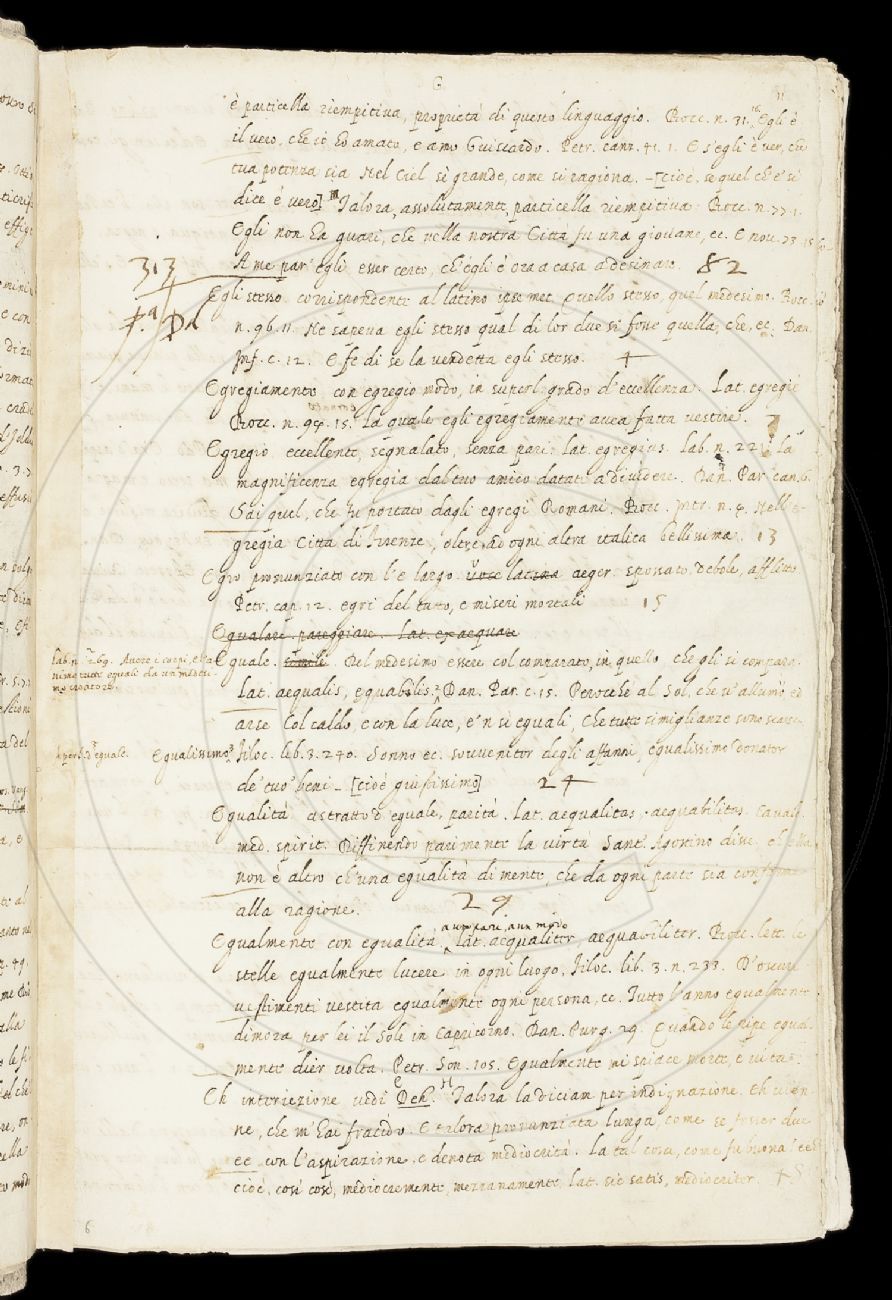 è particella riempitiva, proprietà di questo linguaggio. Bocc. n. 31. 16. Egli è
il vero, che io hò amato, e amo Guiscardo. Petr. canz. 41. 1. E s'egli è ver, che
tua potenza sia Nel Ciel si grande, come si ragiona. — [cioè. se quel ch'e' si
dice è vero] Talora, assolutamente, particella riempitiva. Bocc. n. 77. 1.
Egli non ha guari, che nella nostra Città fu una giovane, ec. E nov. 73. 15.
A me par' egli esser certo, ch'egli è ora a casa a desinare. 82
313
Egli stesso. corrispondente al latino ipsemet. Quello stesso, quel medesimo. Bocc.
p.a Da
n. 96. 11. Ne sapeva egli stesso qual di lor due si fosse quella, che, ec. Dan.
Inf. c. 12. E fe di se la vendetta egli stesso. 4
Egregiamente con egregio modo, in superl. grado d'eccellenza. Lat. egregiè
Bocc. n. 94. 15. la quale egli egregiamente avea fatta vestire. 7
Egregio eccellente, segnalato, senza pari. lat. egregius. Lab. n. 221. la
magnificenza egregia dal tuo amico datati a dividere. Dan. Par. can. 6.
Sai quel, che fu portato dagli egregi Romani. Bocc. Intr. n. 4. Nell'e-
gregia Città di Firenze, oltre ad ogni altra italica bellissima. 13
Egro pronunziato con l'e largo. voce latina aeger. spossato debole, afflitto
Petr. cap. 12. egri del tutto, e miseri mortali 15
Egualare. pareggiare. Lat. exaequare
Lab. n. 269. Avere i corpi, e l'a-
nime tutte eguali da un medesi-
mo creatore.
Eguale. simile. Del medesimo essere col comparato, in quello che gli si compara.
Lat. aequalis, equabilis. Dan. Par. c. 15. Perocchè al Sol, che v'allumò ed
arse Col caldo, e con la luce, è n sì eguali, Che tutte simiglianze sono scarse.
superl. d'eguale. Egualissimo Filoc. lib. 3. 240. Sonno ec. souvenitor degli affanni, egualissimo donator
de' tuo' beni — [cioè giustissimo] 24
Egualità astratto d'eguale, parità. lat. aequalitas, aequabilitas. Cavalc.
med. spirit. Diffinendo parimente la virtù Sant' Agostino disse, ch'ella
non è altro ch'una egualità di mente, che da ogni parte sia conforme
alla ragione. 29
Egualmente con egualità, a un pari, a un modo lat. aequaliter, aequabiliter. Bocc. lett. le
stelle egualmente lucere in ogni luogo. Filoc. lib. 3. n. 233. D'oscuri
vestimenti vestita egualmente ogni persona, ec. Tutto l'anno egualmente
dimora per lei il Sole in Capricorno. Dan. Purg. 29. Quando le ripe egual-
mente dier volta. Petr. Son. 105. Egualmente mi spiace morte, e vita.
Eh interiezione vedi Deh. Talora la diciam per indignazione. Eh vien-
ne, che m'hai fracido. E talora pronunziata lunga, come se fosser due
ee con l'aspirazione e denota mediocrità. La tal cosa, come fu buona? eeh
cioè, così così, mediocremente, mezzanamente lat. sic satis, mediocriter.
6